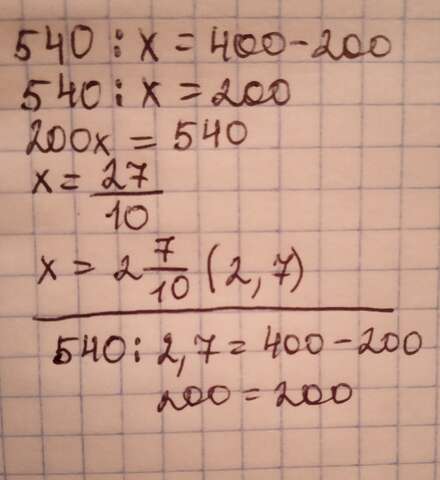 540 : x = 400 - 200
540 : x = 200
200x = 540
x = 27/10
x = 2 7/10 (2,7)
540 : 2,7 = 400 - 200
200 = 200